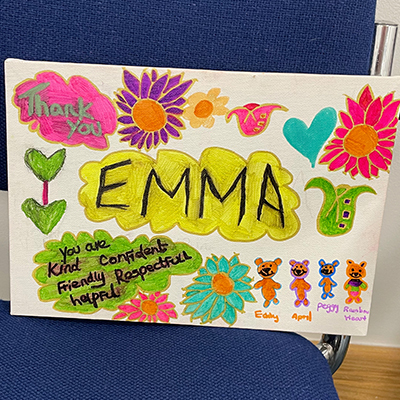 Thank
you
EMMA
you are
Kind Confident
Friendly Respectfull
helpful
Eddy April Peggy Rainbow
Heart